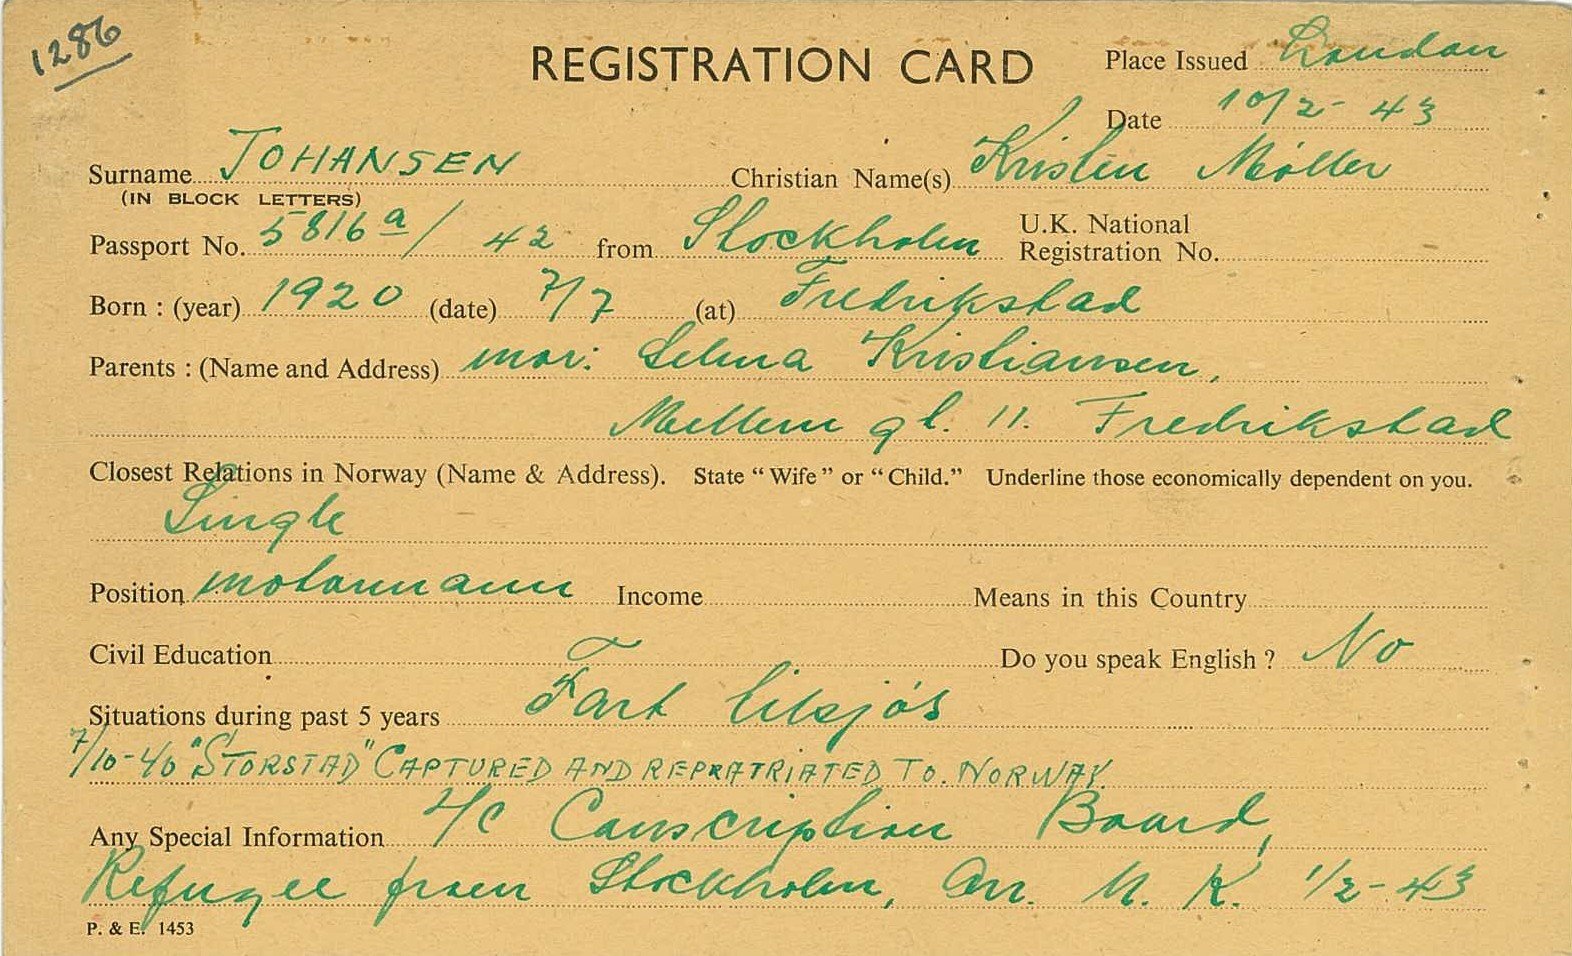 1286
REGISTRATION CARD
Place Issued London
Date 10/2-43
Surname JOHANSEN Christian Name(s) Kristen Møller
(IN BLOCK LETTERS)
Passport No. 5816a/42 from Stockholm U.K. National Registration No.
Born : (year) 1920 (date) 7/7 (at) Fredrikstad
Parents : (Name and Address) mor: Selma Kristiansen,
Mellem gt. 11. Fredrikstad
Closest Relations in Norway (Name & Address). State "Wife" or "Child." Underline those economically dependent on you.
Single
Position motormann Income Means in this Country
Civil Education Do you speak English ? No
Situations during past 5 years Fart tilsjøs
7/10-40 "STORSTAD" CAPTURED AND REPRATRIATED TO. NORWAY.
Any Special Information T/C Conscription Board,
Refugee from Stockholm, Arr. U. K. 1/2-43
P. & E. 1453